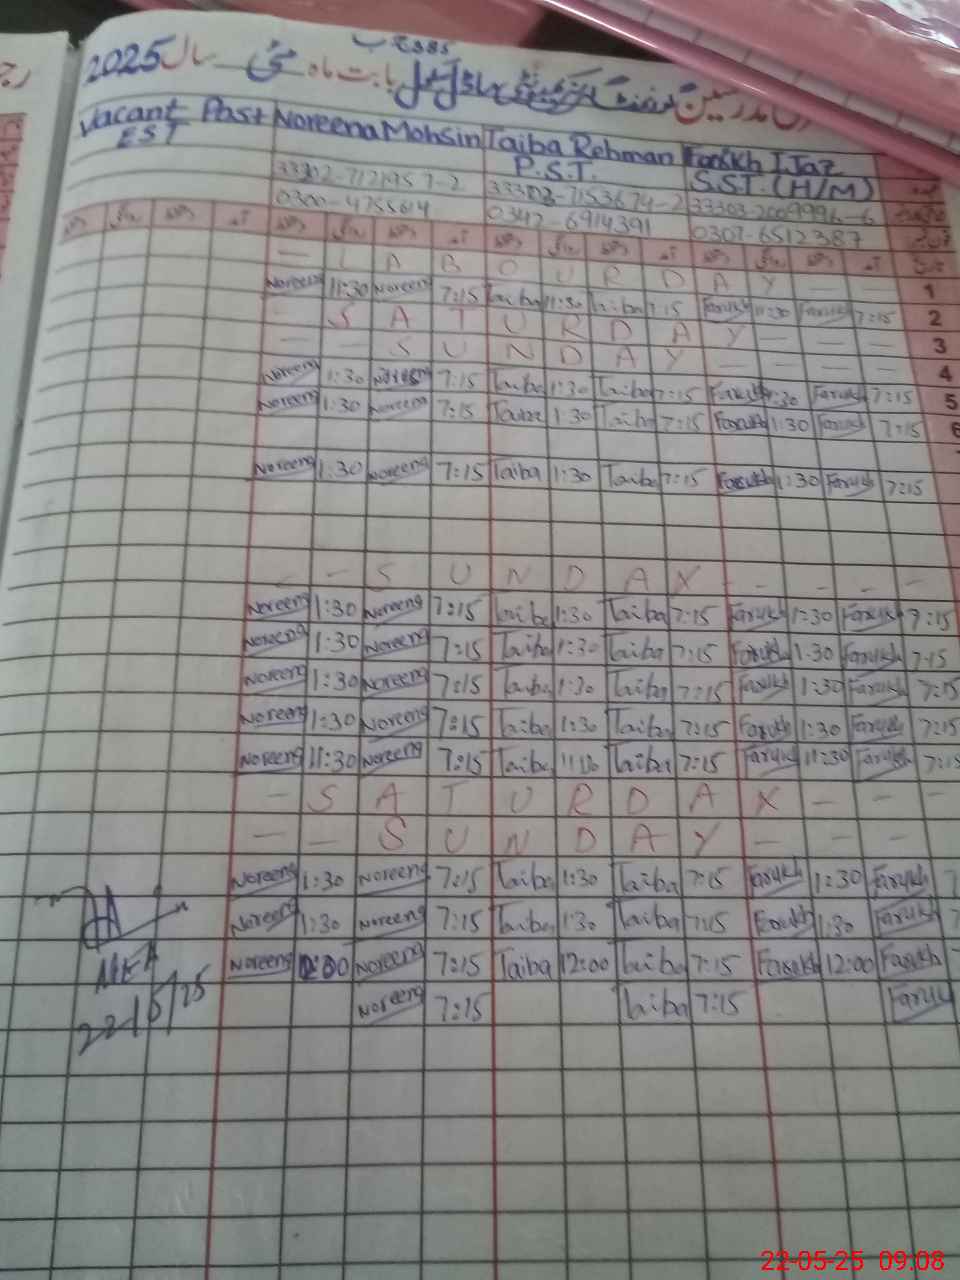 2025 سال
Vacant Post Noreena Mohsin Taiba Rehman Farukh IJaz
EST P.S.T. S.ST.(H/M)
33302-7121957-2 33303-7153674-2 33303-2009996-6
0300-4755614 0347-6914391 0307-6512387
— L A B O U R D A Y — — 1
Noreena 11:30 Noreena 7:15 Taiba 11:30 Taiba 7:15 Farukh 11:30 Farukh 7:15 2
— S A T U R D A Y — — 3
— — S U N D A Y — — — — 4
Noreena 1:30 Noreena 7:15 Taiba 1:30 Taiba 7:15 Farukh 1:30 Farukh 7:15 5
Noreena 1:30 Noreena 7:15 Taiba 1:30 Taiba 7:15 Farukh 1:30 Farukh 7:15 6
Noreena 1:30 Noreena 7:15 Taiba 1:30 Taiba 7:15 Farukh 1:30 Farukh 7:15
— — S U N D A Y — — — —
Noreena 1:30 Noreena 7:15 Taiba 1:30 Taiba 7:15 Farukh 1:30 Farukh 7:15
Noreena 1:30 Noreena 7:15 Taiba 1:30 Taiba 7:15 Farukh 1:30 Farukh 7:15
Noreena 1:30 Noreena 7:15 Taiba 1:30 Taiba 7:15 Farukh 1:30 Farukh 7:15
Noreena 1:30 Noreena 7:15 Taiba 1:30 Taiba 7:15 Farukh 1:30 Farukh 7:15
Noreena 11:30 Noreena 7:15 Taiba 11:30 Taiba 7:15 Farukh 11:30 Farukh 7:15
— S A T U R D A Y — — —
— — S U N D A Y — — —
Noreena 1:30 Noreena 7:15 Taiba 1:30 Taiba 7:15 Farukh 1:30 Farukh 7
Noreena 1:30 Noreena 7:15 Taiba 1:30 Taiba 7:15 Farukh 1:30 Farukh 7
Noreena 12:00 Noreena 7:15 Taiba 12:00 Taiba 7:15 Farukh 12:00 Farukh 7
Noreena 7:15 Taiba 7:15 Faruk
MEA
22/5/25
22-05-25 09:08